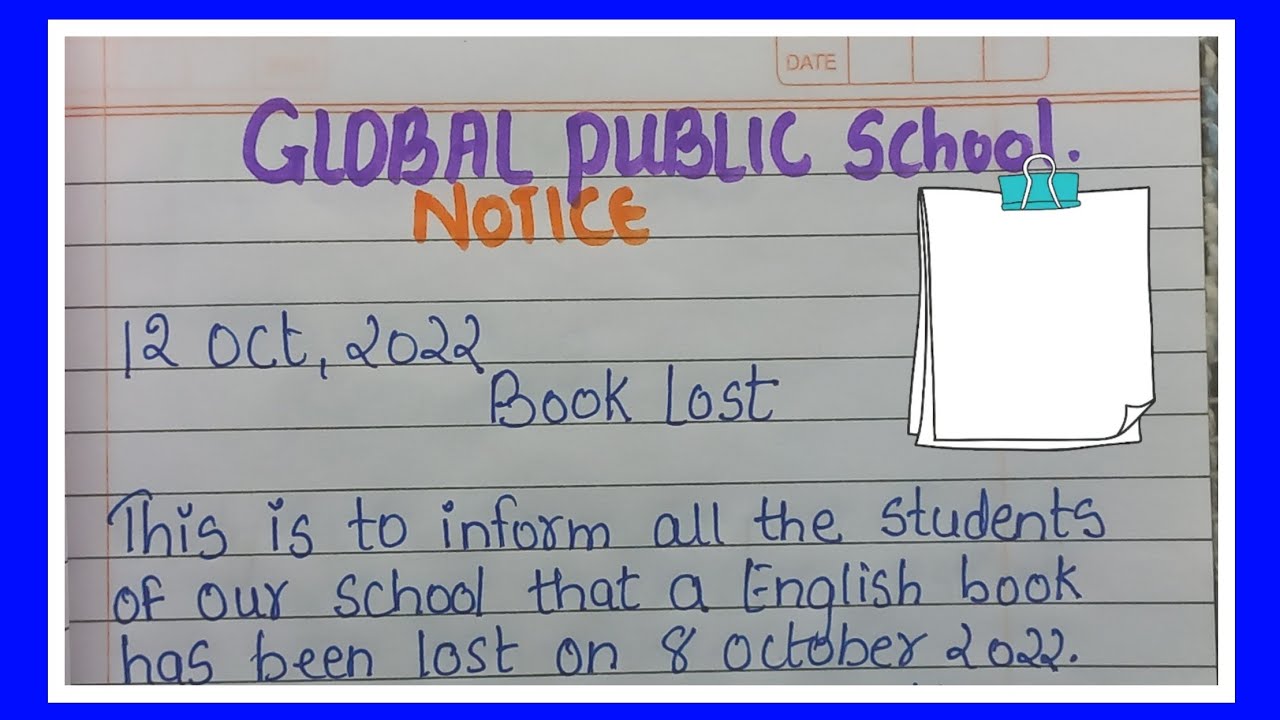 DATE
GLOBAL PUBLIC School.
NOTICE
12 Oct, 2022
Book Lost
This is to inform all the students
of our school that a English book
has been lost on 8 October 2022.